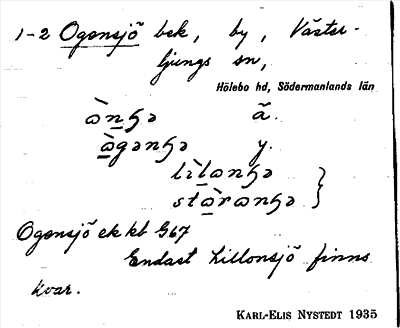 1-2 Ogensjö bek, by, Väster-
ljungs sn,
Hölebo hd, Södermanlands län
ɷ̀nʃɧə ä.
ɷ̀gənɧə y.
lìlɷnɧə
stɷ̀rɷnɧə }
Ogensjö ek kbl G67
Endast Lillonsjö finns
kvar.
KARL-ELIS NYSTEDT 1935